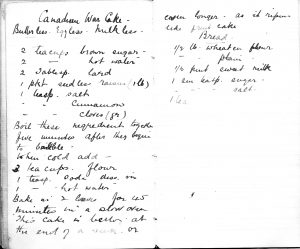 Canadian War Cake -
Butterless. Eggless. Milkless -
2 teacups brown sugar -
2 - " - hot water
2 Tablesp. lard
1 pkt seedless raisins (1 lb)
1 teasp. salt
1 - " - Cinnamon
1 - " - cloves
Boil these ingredients together
five minutes after they begin
to bubble -
When cold add -
3 teacups. flour
1 teasp. soda diss. in
1 - " - hot water -
Bake in 2 loaves for 45
minutes in a slow oven
This cake is better at
the end of a week. or
even longer - as it ripens
like fruit cake
Bread.
1/2 lb. wheaten flour
1/2 " plain "
1/2 pint sweet milk
1 teasp. sugar -
1 " salt.
1 tea